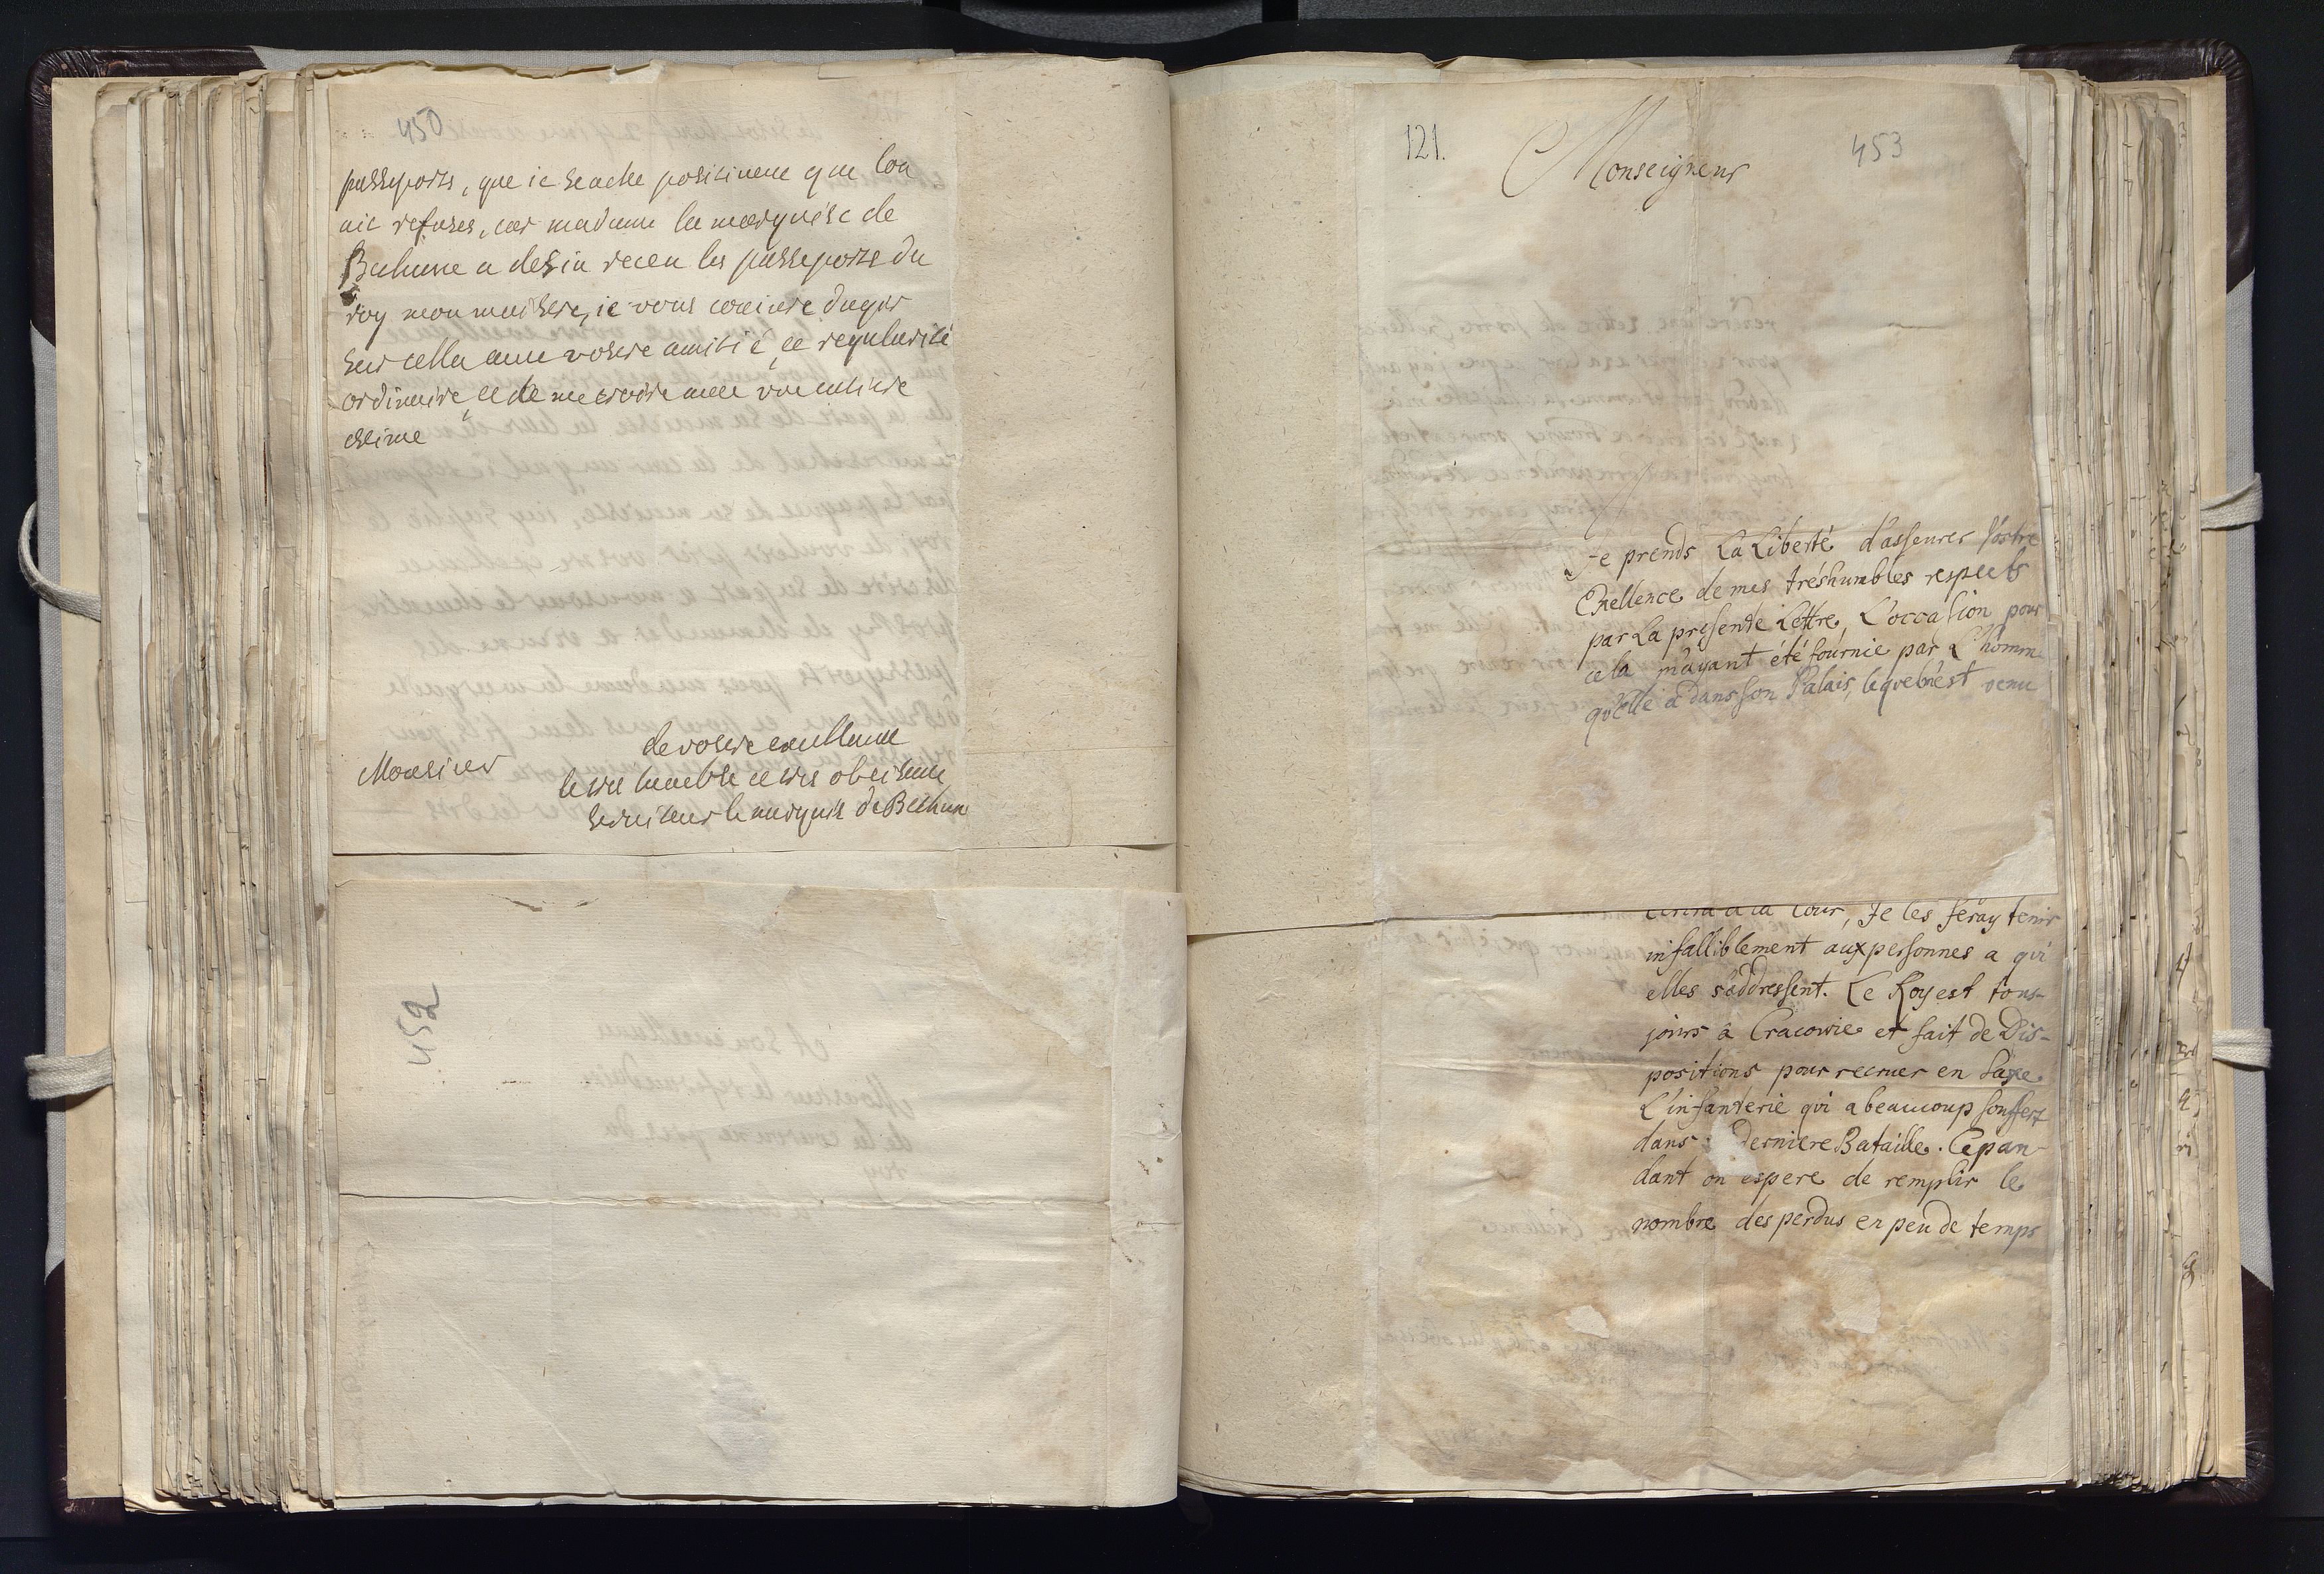 450
passeports, que ie seache positivem que lon
aie refuses, car madame la marquise de
Bethune a desia receu les passeports du
roy mon maistre, ie vous coniure dagir
sur cella avec vostre amitié et regularité
ordinaire, et de me croire avec une entiere
estime
de vostre excellence
Monsieur
le tres humble et tres obeissant
serviteur le marquis de Bethune
452
121.
453
Monseigneur
Je prends La Liberté d'asseurer Vostre
Excellence de mes tréshumbles respects
par La presente Lettre, L'occasion pour
cela m'ayant été fournie par L'homme
qu'Elle a dans son Palais, lequel m'est venu
a la Cour, Je les feray tenir
infalliblement aux personnes a qui
elles s'addressent. Le Roy est tous-
jours a Cracowie et fait de Dis-
positions pour recruer en Saxe
L'infanterie qui a beaucoup souffert
dans derniere Bataille. Cepan-
dant on espere de remplir le
nombre des perdus en peu de temps